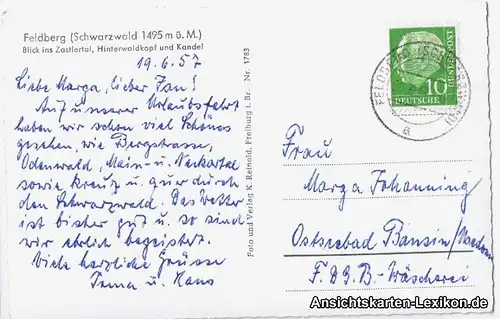 Feldberg (Schwarzwald 1495 m ü. M.)
Blick ins Zastlertal, Hinterwaldkopf und Kandel
19.6.57
Liebe Marga, lieber Jan!
Auf unserer Urlaubsfahrt
haben wir schon viel Schönes
gesehen, wie Bergstrasse,
Odenwald, Main- u. Neckartal
sowie kreuz u. quer durch
den Schwarzwald. Das Wetter
ist bisher gut u. so sind
wir ehrlich begeistert.
Viele herzliche Grüsse
u. Hans
Foto und Verlag K. Reinold, Freiburg i. Br. Nr. 1783
10
DEUTSCHE
BUNDESPOST
FELDBERG
a
Frau
Marga Johanning
Ostseebad Bansin
F.D.G.B.-Wäscherei
Ansichtskarten-Lexikon.de